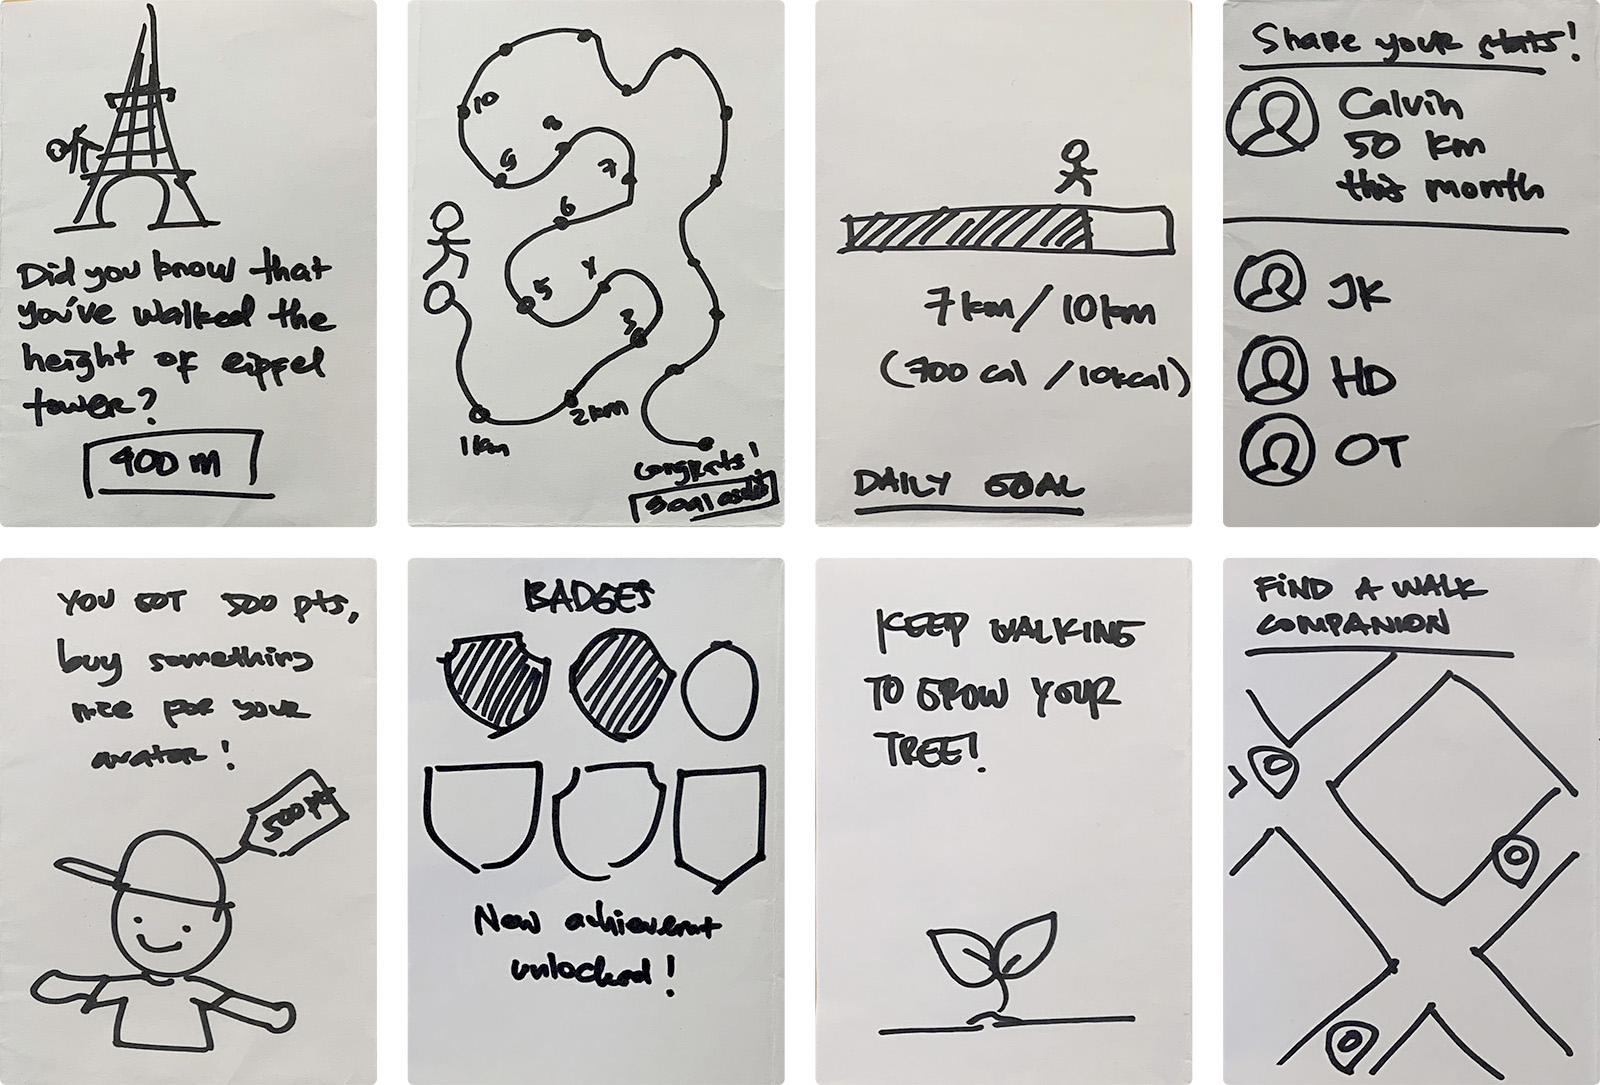 Did you know that
you've walked the
height of eiffel
tower?
400 m
10
9
8
7
6
5
4
3
2km
1km
Congrats!
Goal
7km/10km
(700 cal /10kcal)
DAILY GOAL
Share your stats!
Calvin
50 km
this month
JK
HD
OT
YOU GOT 500 pts,
buy something
nice for your
avatar!
500 pt
BADGES
New achievemt
unlocked!
KEEP WALKING
TO GROW YOUR
TREE!
FIND A WALK
COMPANION